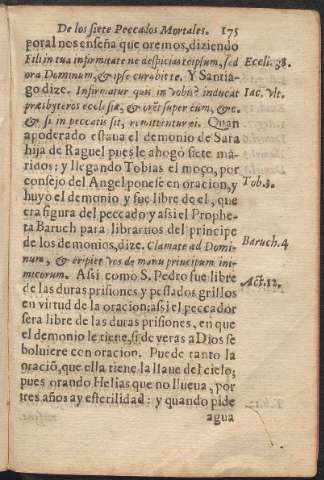 De los siete Peccados Mortales. 175
poral nes enseña que oremos, diziendo
Fili in tua infirmitate ne despicias teipsum, sed Eccli. 38.
ora Dominum, & ipse curabit te. Y Santia-
go dize. Infirmatur quis in vobis? inducat Iac. Vlt.
præsbyteros ecclesiæ, & orēt super eum, &c.
& si in peccatis sit, remittentur ei. Quan
apoderado estaua el demonio de Sara
hija de Raguel pues le ahogo siete ma
ridos: y llegando Tobias el moço, por
consejo del Angel ponese en oracion, y Tob. 3.
huyo el demonio y fue libre de el, que
era figura del peccado y assi el Prophe
ta Baruch para librarnos del principe
de los demonios, dize. Clamate ad Domi- Baruch. 4
num, & eripiet vos de manu principum ini-
micorum. Assi como S. Pedro fue libre Act. 12.
de las duras prisiones y pesados grillos
en virtud de la oracion: assi el peccador
sera libre de las duras prisiones, en que
el demonio le tiene, si de veras a Dios se
boluiere con oracion. Puede tanto la
oraciō, que ella tiene la llaue del cielo,
pues orando Helias que no llueua, por
tres años ay esterilidad: y quando pide
agua